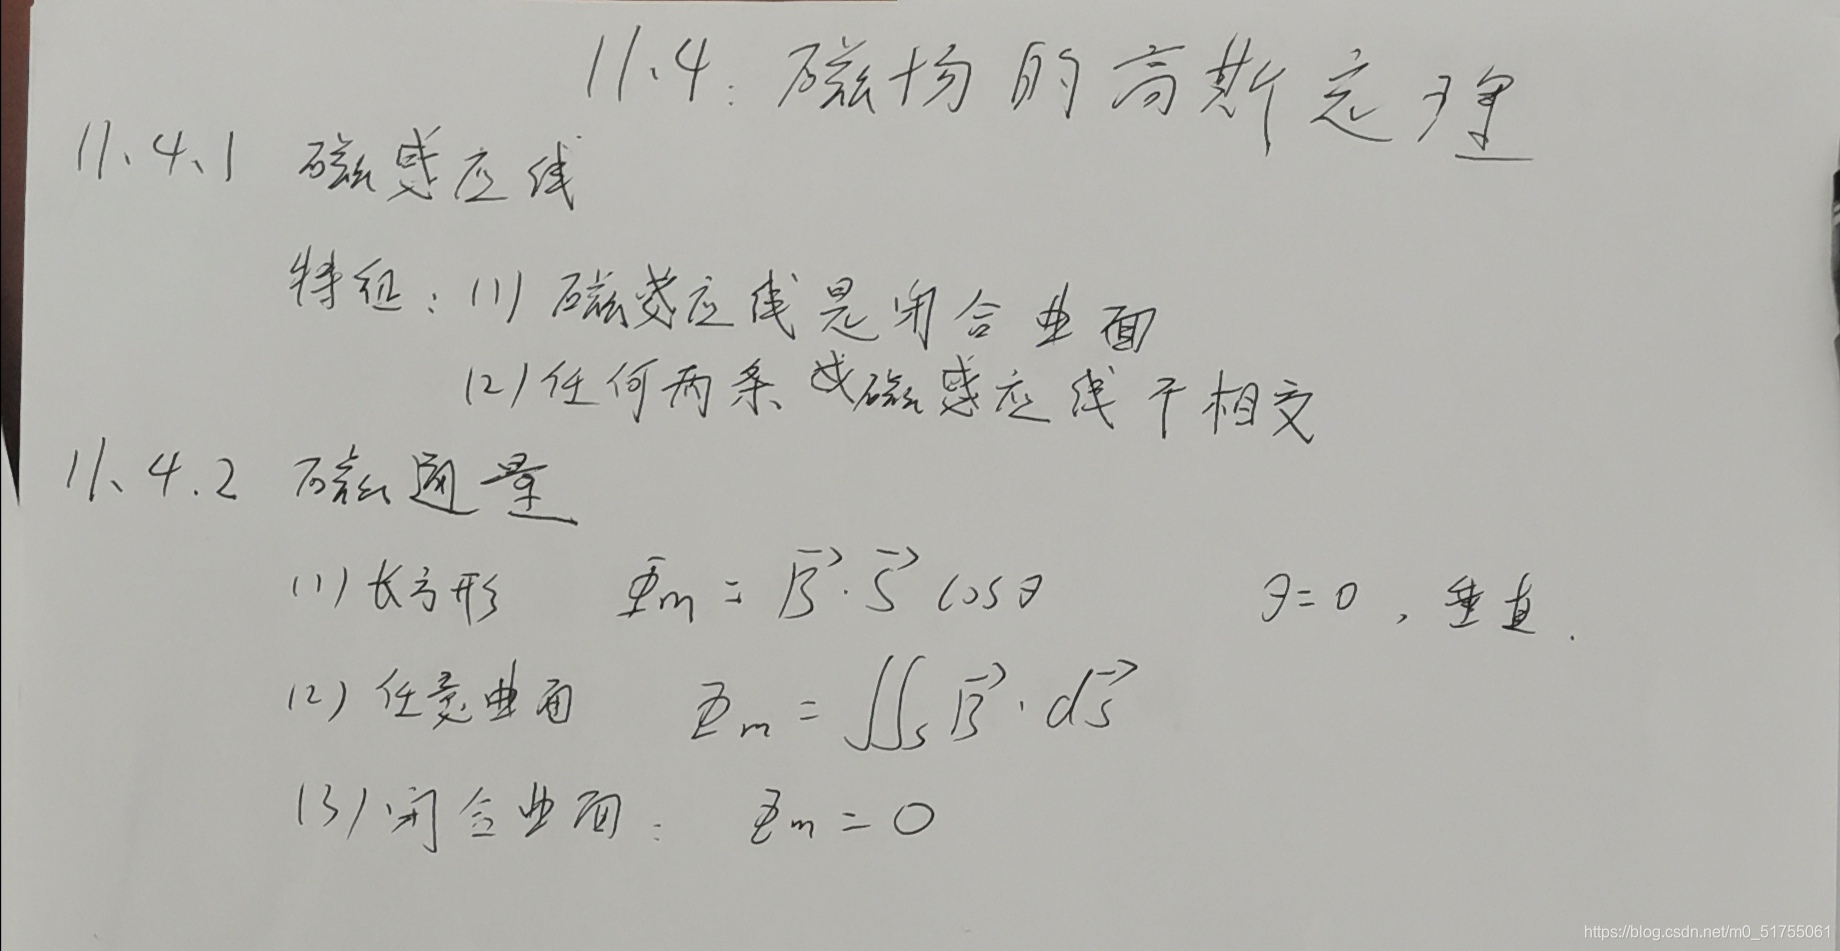 11.4:磁场的高斯定理
11、4、1 磁感应线
特征:(1)磁感应线是闭合曲面
(2)任何两条磁感应线不相交
11、4.2 磁通量
(1)长方形 Φm = B⃗·S⃗ cosθ θ=0,垂直.
(2)任意曲面 Φm = ∬s B⃗·dS⃗
(3)闭合曲面: Φm = 0
https://blog.csdn.net/m0_51755061